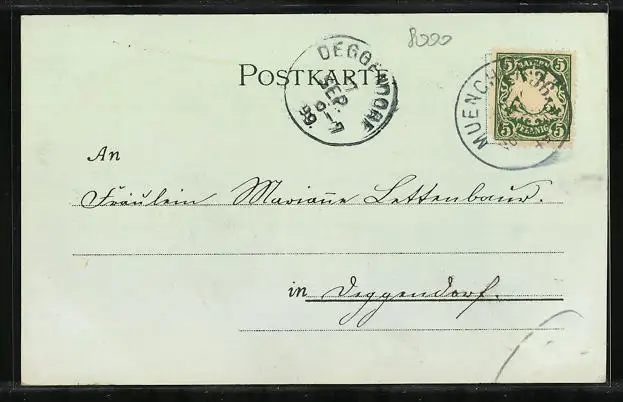 8000
POSTKARTE
DEGGENDORF
7
SEP.
99
BAYERN
5 5
5 5
PFENNIG
MUENCHEN
An
Fräulein Marianne Lettenbaur.
in Deggendorf.